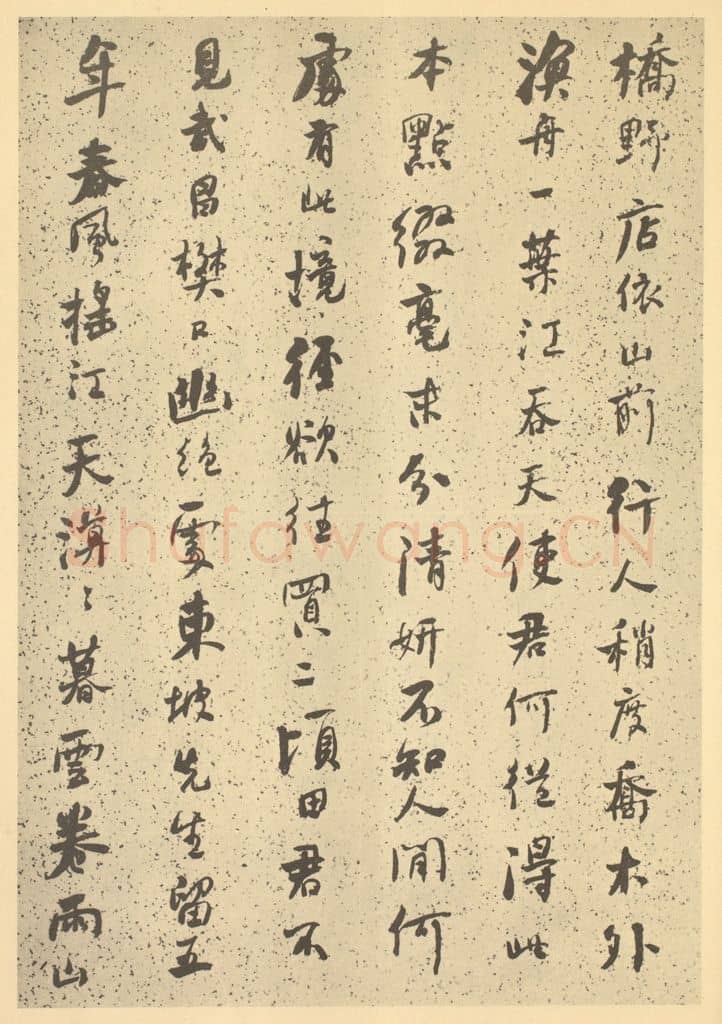 橋野店依山前行人稍度喬木外
漁舟一葉江吞天使君何從得此
本點綴毫末分清妍不知人間何
處有此境徑欲往買二頃田君不
見武昌樊口幽絕處東坡先生留五
年春風搖江天漠〻暮雲卷雨山
Shufawang.CN